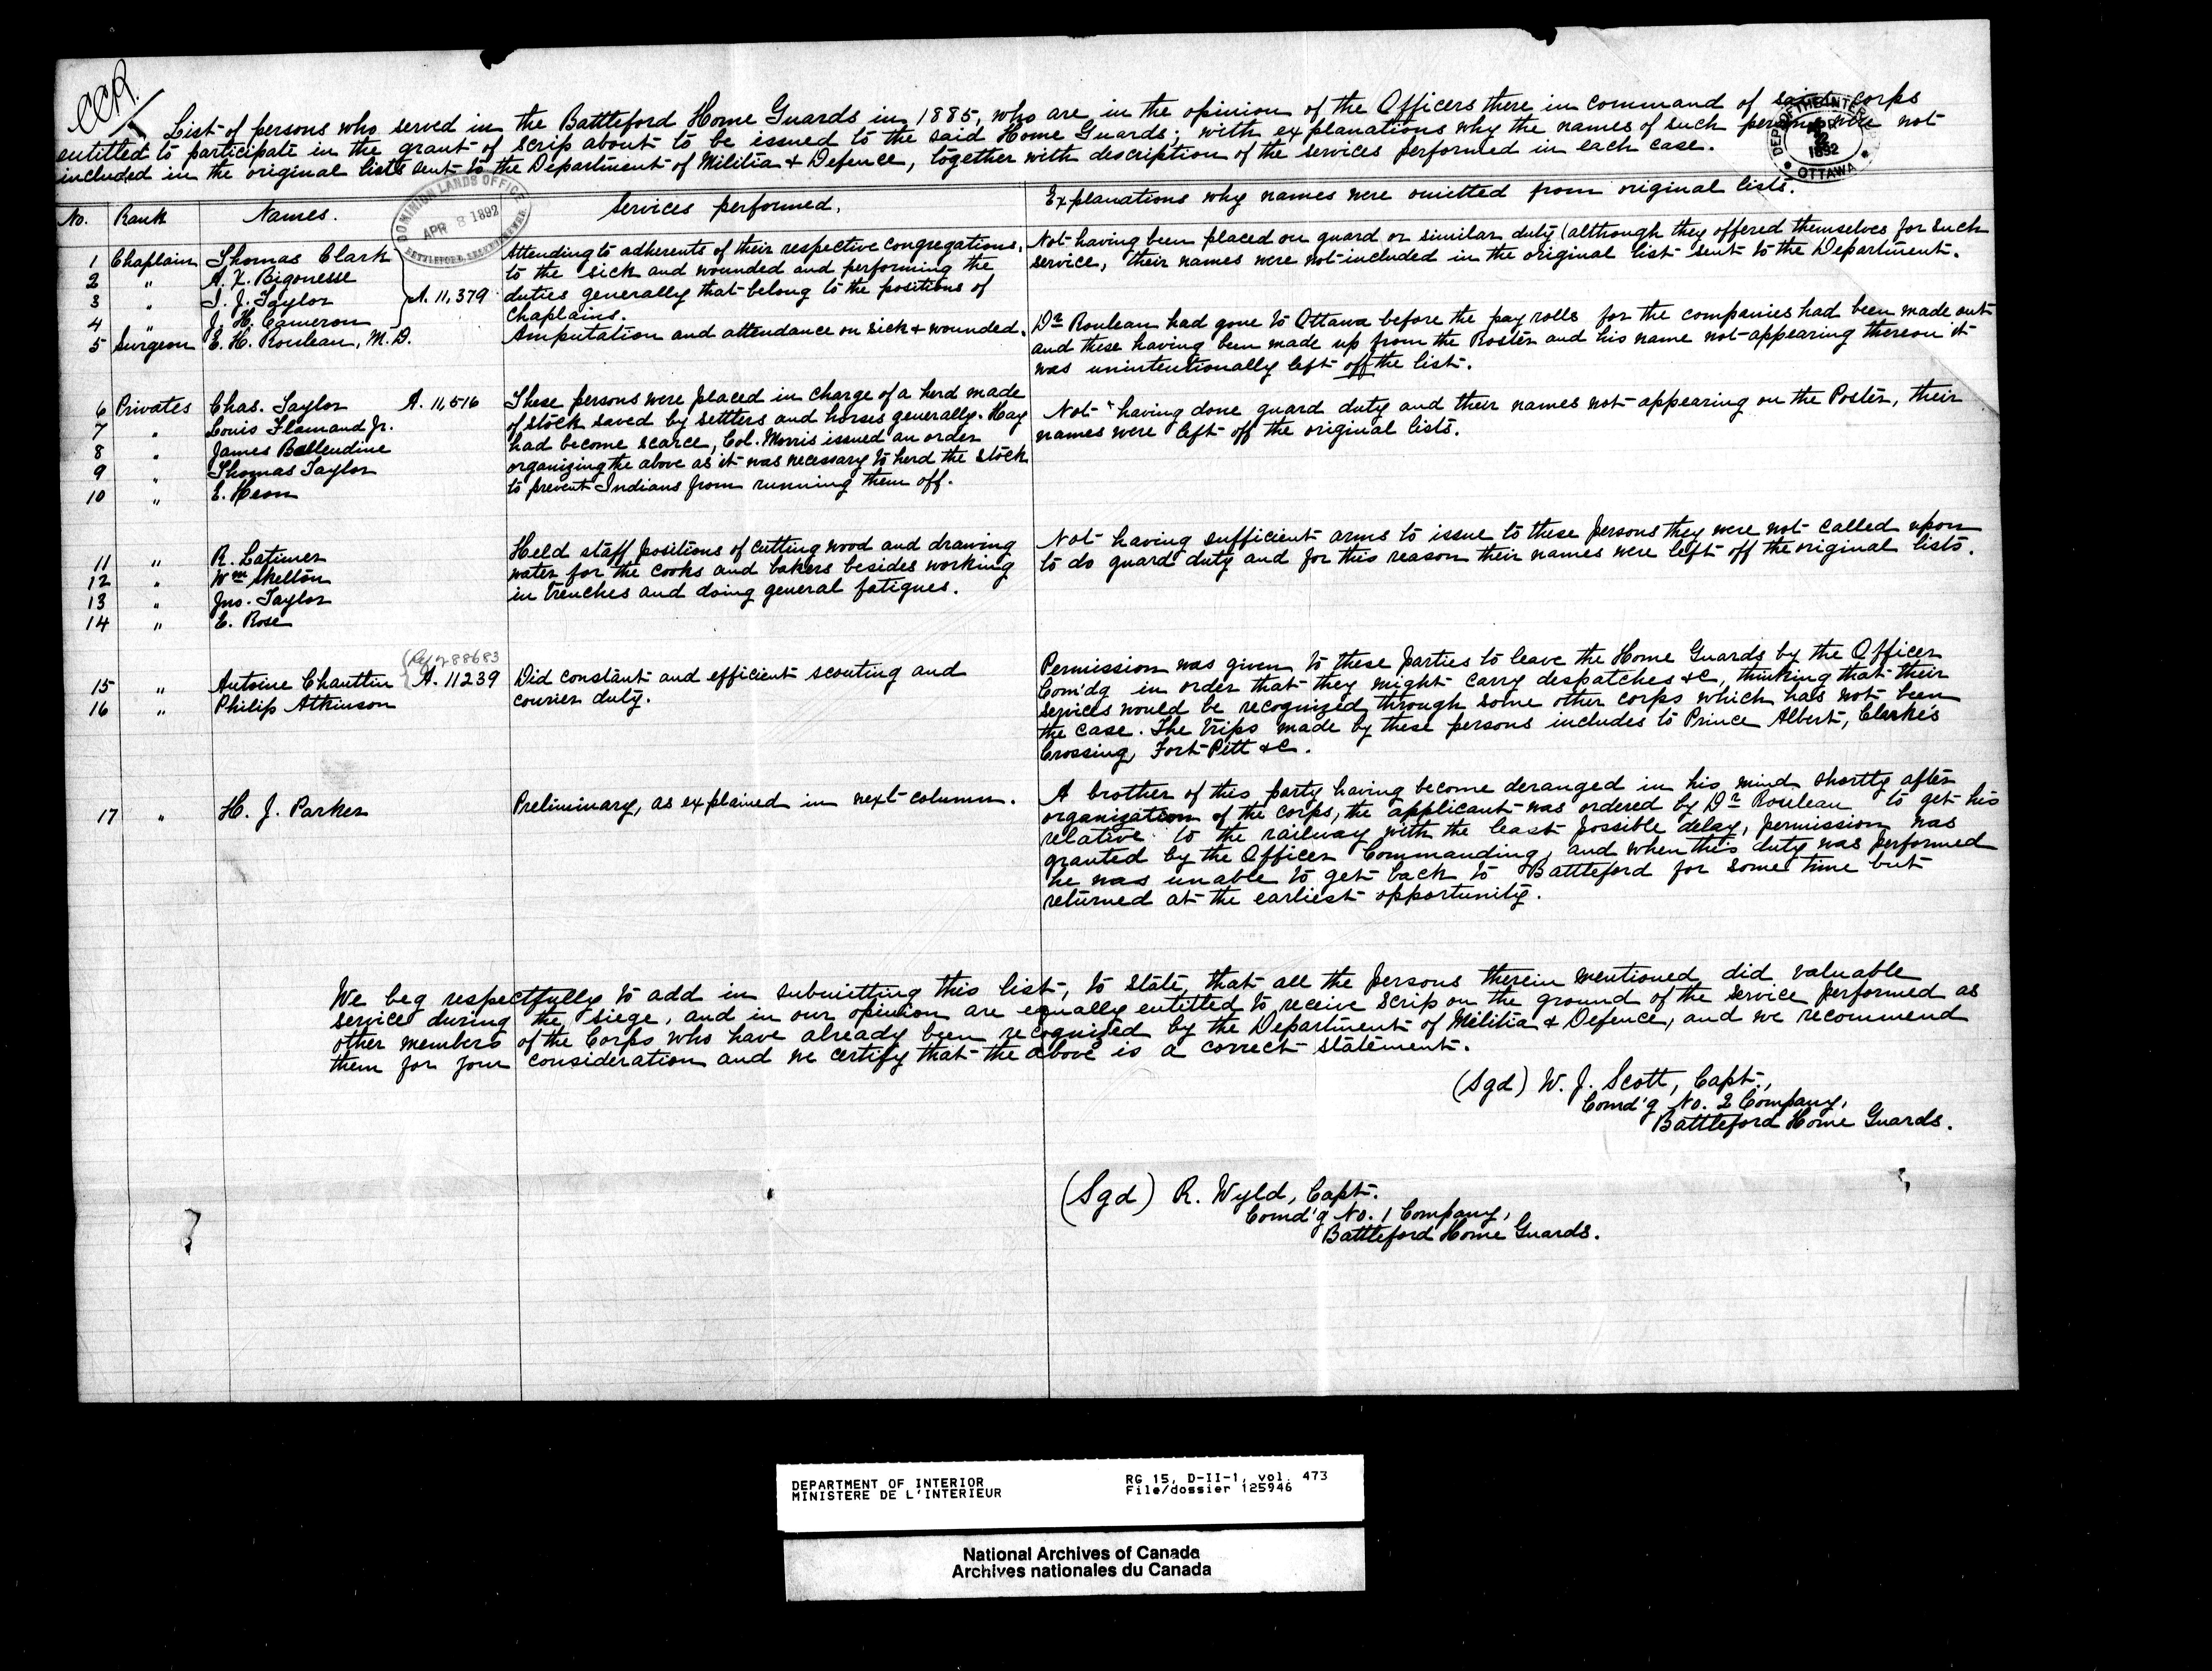 CCR
List of persons who served in the Battleford Home Guards in 1885, who are, in the opinion of the Officers there in command of said corps
entitled to participate in the grant of scrip about to be issued to the said Home Guards; with explanations why the names of such persons were not
included in the original lists sent to the Department of Militia & Defence, together with description of the services performed in each case.
DEPT OF THE INTERIOR
1892
OTTAWA
DOMINION LANDS OFFICE
APR 8 1892
No. Rank Names. Services performed. Explanations why names were omitted from original lists.
1 Chaplain Thomas Clark
2 " A. X. Bigonesse
3 " I. J. Taylor A. 11,379
4 " J. H. Cameron
Attending to adherents of their respective congregations,
to the sick and wounded and performing the
duties generally that belong to the positions of
Chaplains.
Not having been placed on guard or similar duty (although they offered themselves for such
service, their names were not included in the original list sent to the Department.
5 Surgeon E. H. Rouleau, M. D.
Amputation and attendance on sick & wounded.
Dr Rouleau had gone to Ottawa before the pay rolls for the companies had been made out
and these having been made up from the Roster and his name not appearing thereon it
was unintentionally left off the list.
6 Privates Chas. Taylor A. 11,516
7 " Louis Flamand Jr.
8 " James Ballendine
9 " Thomas Taylor
10 " E. Heon
These persons were placed in charge of a herd made
of stock saved by settlers and horses generally. Hay
had become scarce, Col. Morris issued an order
organizing the above as it was necessary to herd the stock
to prevent Indians from running them off.
Not having done guard duty and their names not appearing on the Poster, their
names were left off the original lists.
11 " R. Latimer
12 " Wm Skelton
13 " Jno. Taylor
14 " E. Rose
Held staff positions of cutting wood and drawing
water for the cooks and bakers besides working
in trenches and doing general fatigues.
Not having sufficient arms to issue to these persons they were not called upon
to do guard duty and for this reason their names were left off the original lists.
88683
15 " Antoine Chauttin A. 11239
16 " Philip Atkinson
Did constant and efficient scouting and
courier duty.
Permission was given to these parties to leave the Home Guards by the Officer
Com'dg in order that they might carry despatches &c, thinking that their
services would be recognized through some other corps which has not been
the case. The trips made by these persons includes to Prince Albert, Clarke's
Crossing, Fort Pitt &c.
17 " H. J. Parker
Preliminary, as explained in next column.
A brother of this party having become deranged in his mind shortly after
organization of the corps, the applicant was ordered by Dr Rouleau to get his
relative to the railway with the least possible delay, permission was
granted by the Officer Commanding, and when this duty was performed
he was unable to get back to Battleford for some time but
returned at the earliest opportunity.
We beg respectfully to add in submitting this list, to state, that all the persons therein mentioned did valuable
service during the siege, and in our opinion are equally entitled to receive scrip on the ground of the service performed as
other members of the Corps who have already been recognized by the Department of Militia & Defence, and we recommend
them for your consideration and we certify that the above is a correct statement.
(Sgd) W. J. Scott, Capt.,
Comd'g No. 2 Company,
Battleford Home Guards.
(Sgd) R. Wyld, Capt.
Comd'g No. 1 Company,
Battleford Home Guards.
DEPARTMENT OF INTERIOR RG 15, D-II-1, vol. 473
MINISTERE DE L'INTERIEUR File/dossier 125946
National Archives of Canada
Archives nationales du Canada